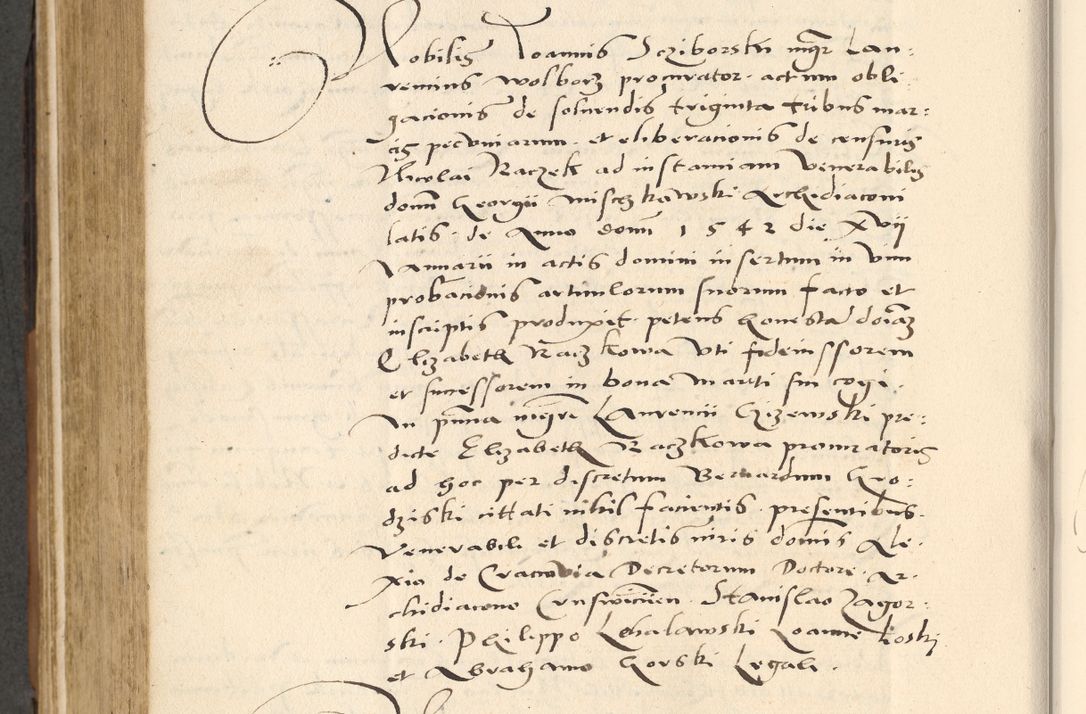 Nobilis Ioannis Scziborskii mgr Lau:
rencius Wolborz procurator. actum obli:
gacionis de solvendis triginta tribus mar:
cis pecuniarum. et eliberationis de censuris
Nicolai Raczek ad instantiam Venerabilis
domi Georgii Mischkowski Archidiaconi
latis. de Anno domi 1542 die Xvii
Januarii in actis domini insertum in vim
probacionis articulorum suorum facto et
inscriptis produxit. petens honesta doiaz
Elizabeth Raczkowa Uti fideiussorem
et successorem in bona mariti sui cogi.
In pntia mgri Laurencii Cizewski pre:
dicte Elizabeth Raczkowa procuratoris
ad hoc per discretum Bernardum Gro:
dziski cittati nihil facientis. presentibus.
Venerabili et discretis viris dominis Ale:
xio de Cracovia Decretorum Doctore. Ar:
chidiacono Stanislao Zagor:
ski. Philippo Lchalawski Ioanne Koski
et Abrahamo Gorski Legali.